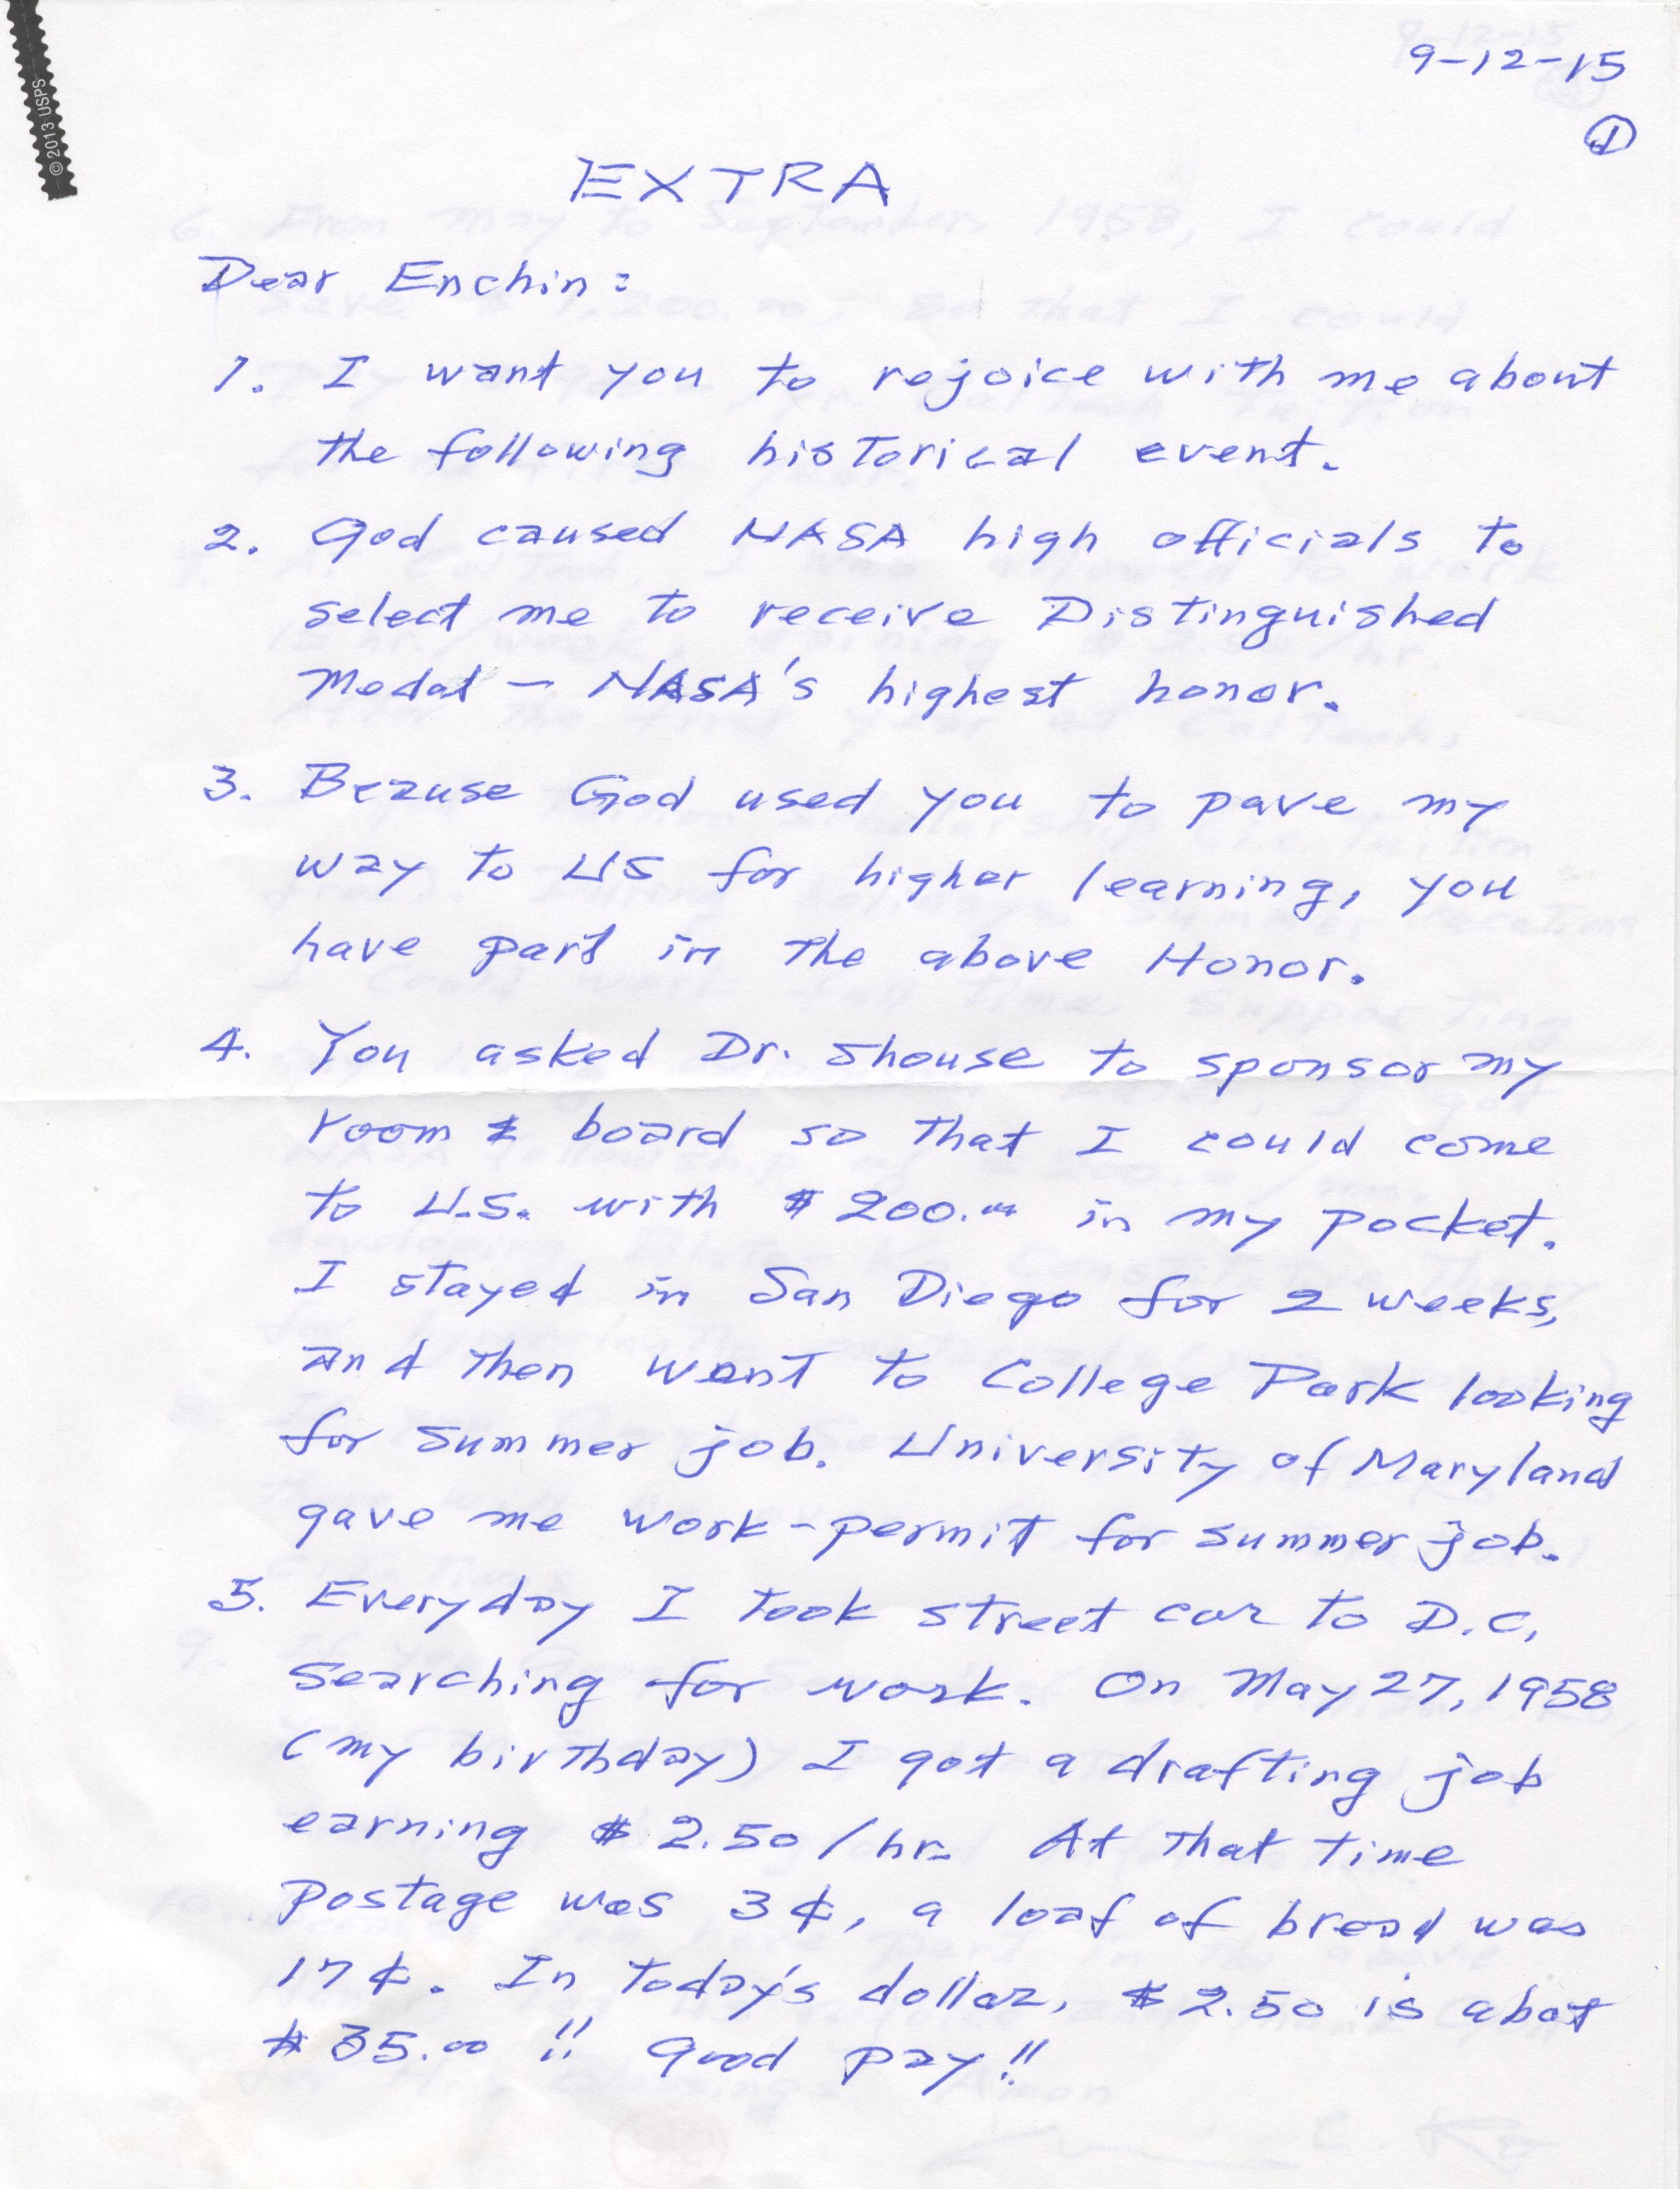 © 2013 USPS
9-12-15
1
EXTRA
Dear Enchin:
1. I want you to rejoice with me about
the following historical event.
2. God caused NASA high officials to
select me to receive Distinguished
Medal - NASA's highest honor.
3. Becuse God used you to pave my
way to US for higher learning, you
have part in the above Honor.
4. You asked Dr. Shouse to sponsor my
room & board so that I could come
to U.S. with $200.00 in my pocket.
I stayed in San Diego for 2 weeks,
and then went to College Park looking
for summer job. University of Maryland
gave me work-permit for summer job.
5. Everyday I took street car to D.C,
searching for work. On May 27, 1958
(my birthday) I got a drafting job
earning $2.50/hr. At that time
postage was 3¢, a loaf of bread was
17¢. In today's dollar, $2.50 is abot
$35.00 !! Good pay!!